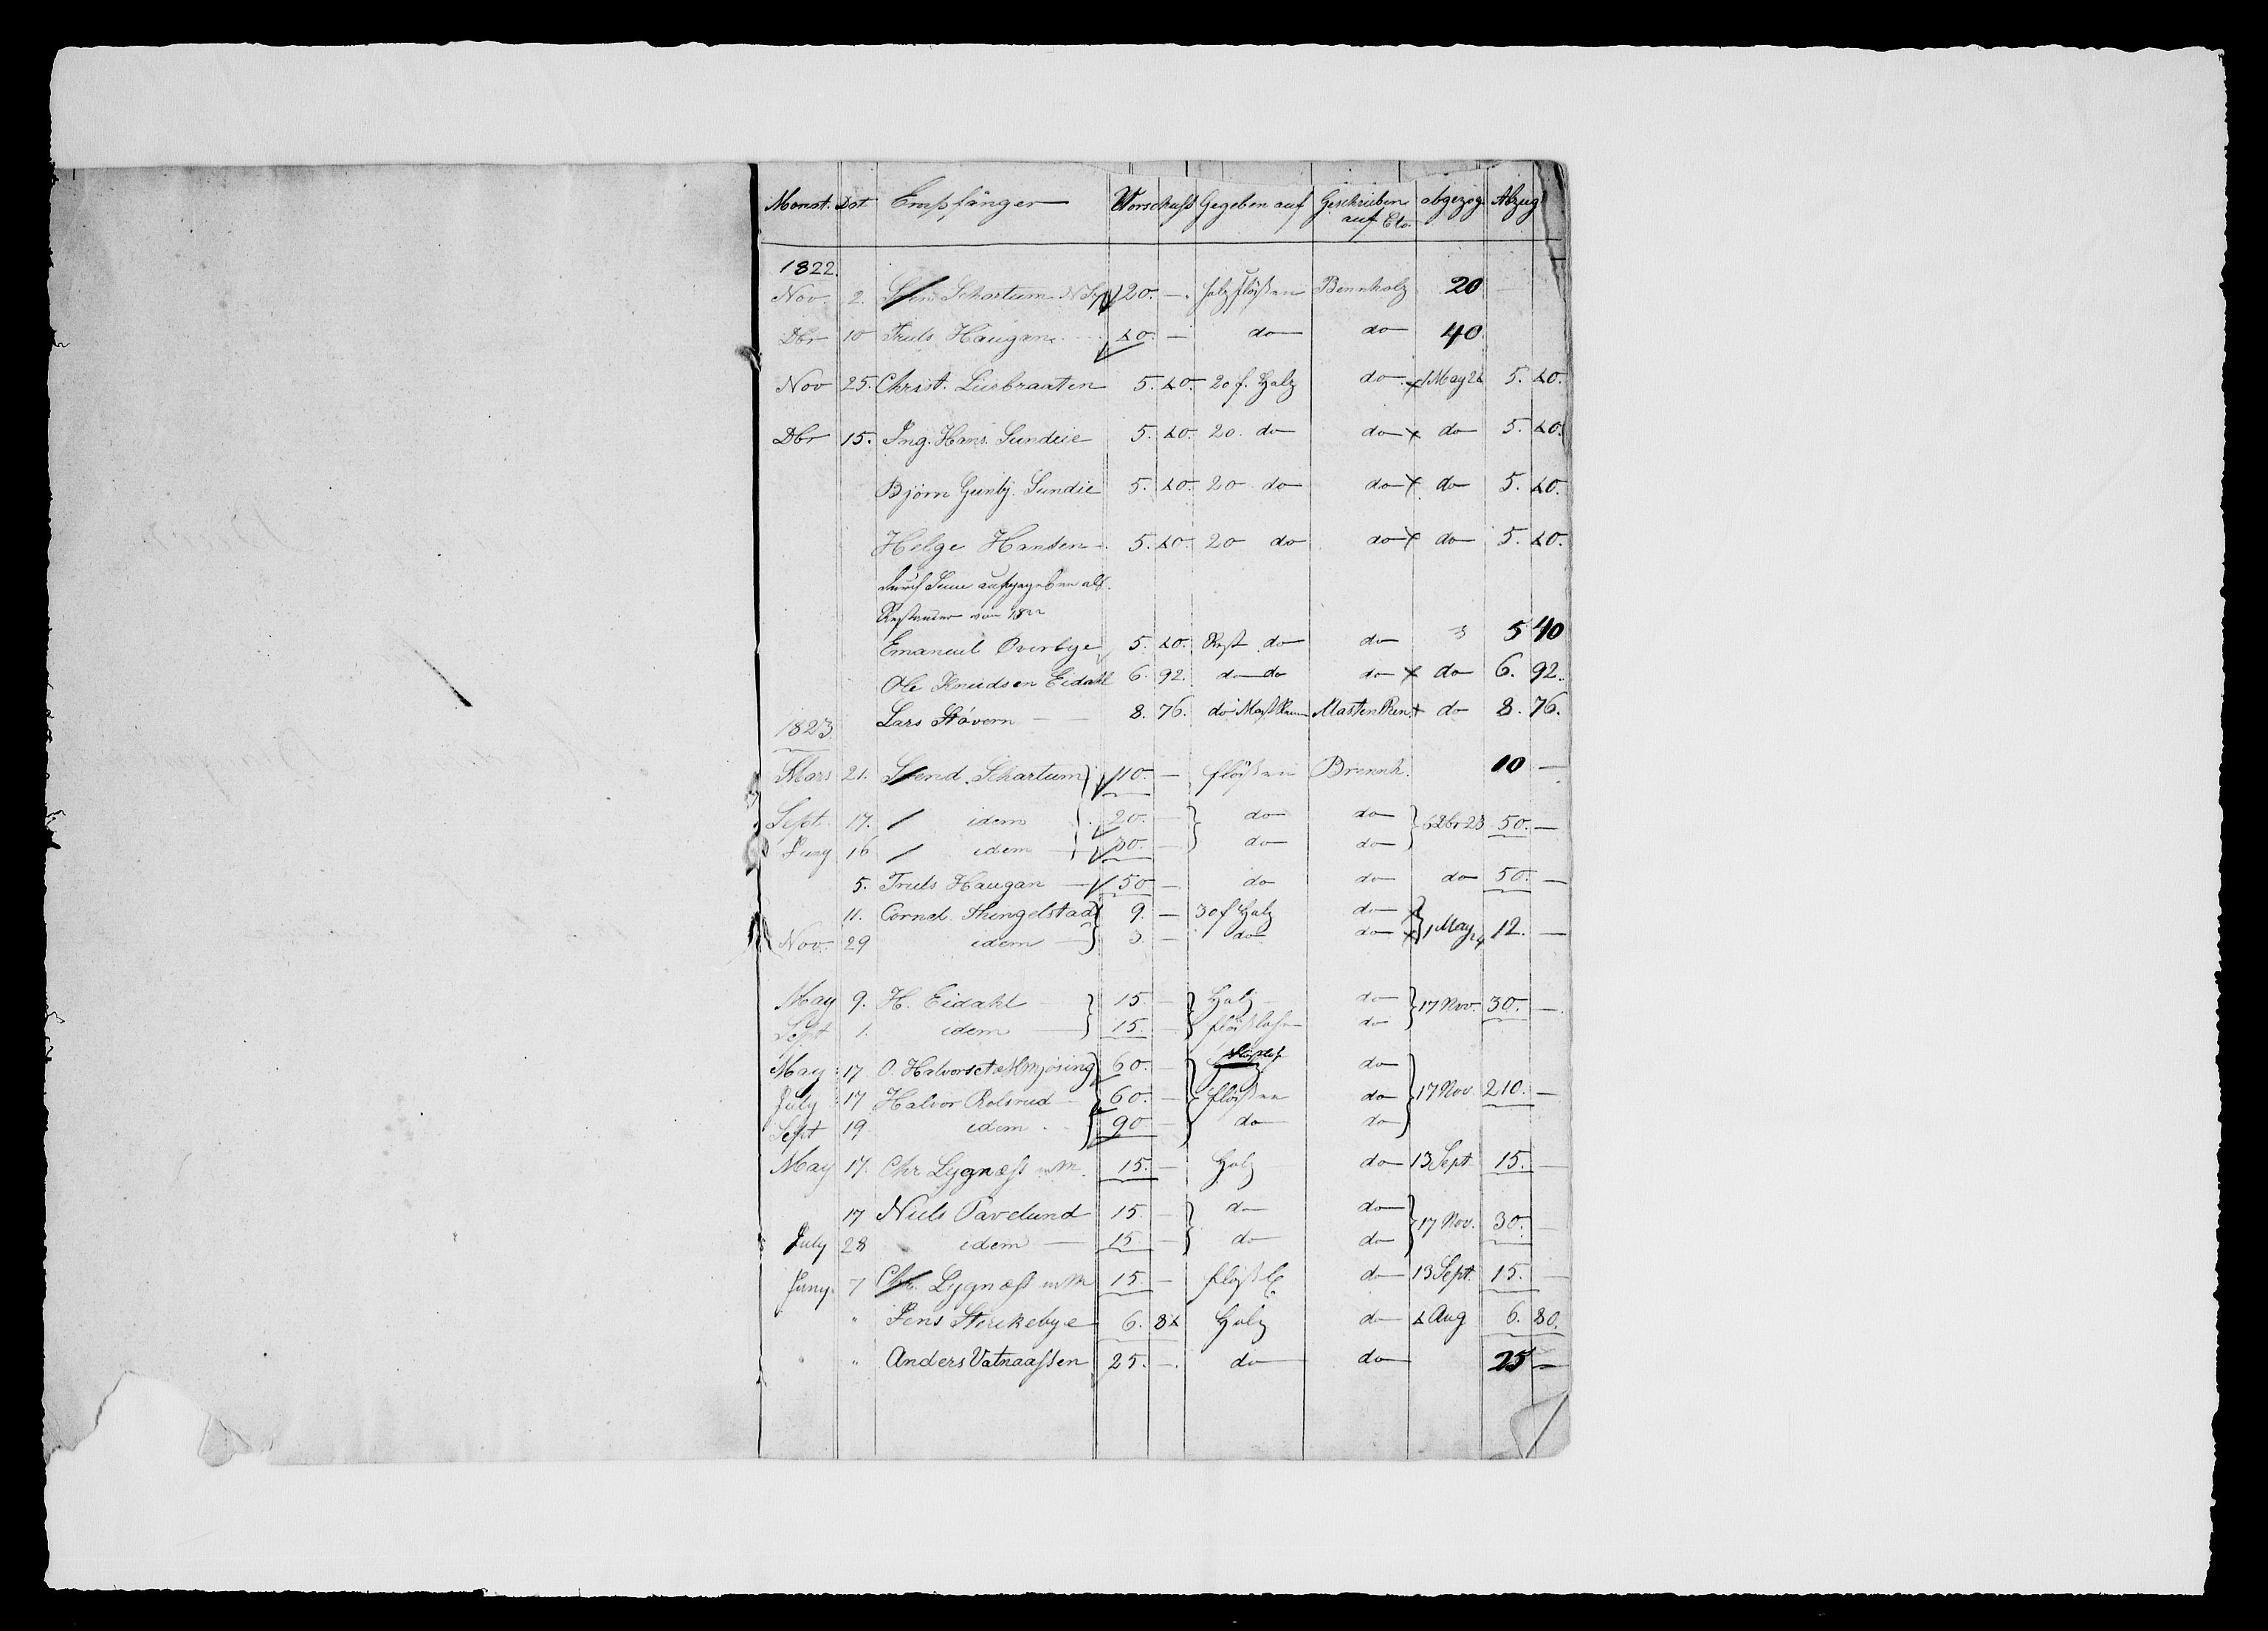 Monat. Dat Empfänger Vorschuß Gegeben auf Geschrieben auf Cto abgezog. Abzug
1822.
Nov. 2. Schartum 20. — Holzflößen Brennholz 20 —
Dbr 10 Truls Haugan 40. — do do 40
Nov 25. Christ. Liisbraaten 5. 40. 20 f. Holz do × 1 May 24 5. 40.
Dbr 15. Ing. Hans. Sundeie 5. 40. 20. do do × do 5. 40.
Björn Gunbj. Sundie 5. 40. 20 do do × do 5. 40.
Helge Hansen 5. 40. 20 do do × do 5. 40.
durch aufgegeben als
von 1822
Emanuel Overbye 5. 40. Rest do do 5 40
Ole Knudsen Eidahl 6. 92. do do do × do 6. 92.
Lars Stövern — 8. 76. do Masten do 8. 76.
1823.
Mars 21. Svend. Schartum 10. — flößen Brennh. 10 —
Sept 17. idem 20. — do do 6 Dbr 23 50. —
Juny 16 idem 30. — do do
5. Truls Haugan — 50 — do do do 50. —
11. Cornel. Thingelstad 9. — 30 f Holz do
Nov. 29 idem — 3. — do do × 1 May 24 12. —
May 9. H. Eidahl 15. — Holz do 17 Nov. 30. —
Sept 1. idem 15. — flößlohn do
May 17 O. Halvorset 60. — do
July 17 Halvor Rolsrud — 60. — flößen do 17 Nov. 210. —
Sept 19 idem 90 — do do
May 17. Chr Lygnæss 15. — Holz do 13 Sept 15. —
17 Niels Tavelund 15. — do do 17 Nov. 30. —
July 28 idem — 15 — do do
Juny. 7 Chr. Lygnæss 15. — do 13 Sept. 15. —
" Jens Sterckebye 6. 84 Holz do 4 Aug 6. 80.
" Anders Vatnaassen 25. — do do 25 —